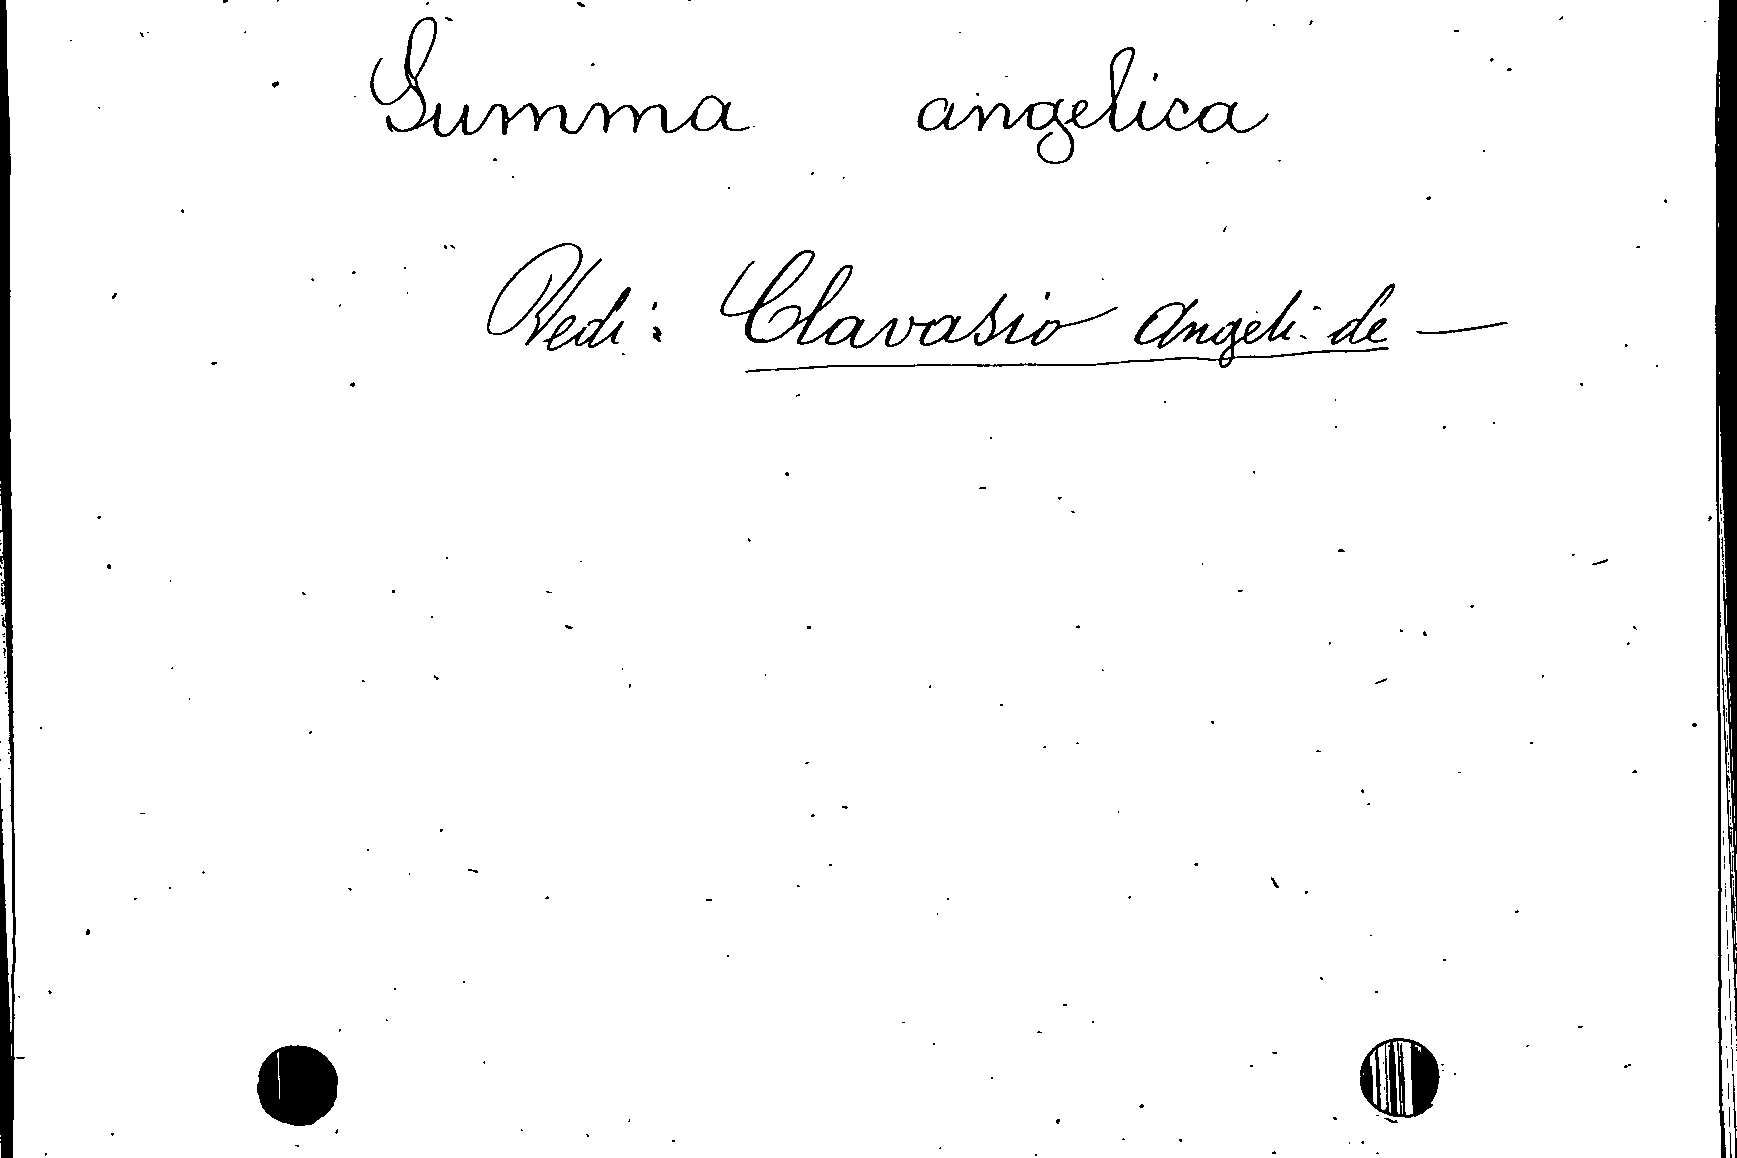 Summa angelica
Vedi: Clavasio Angeli. de —